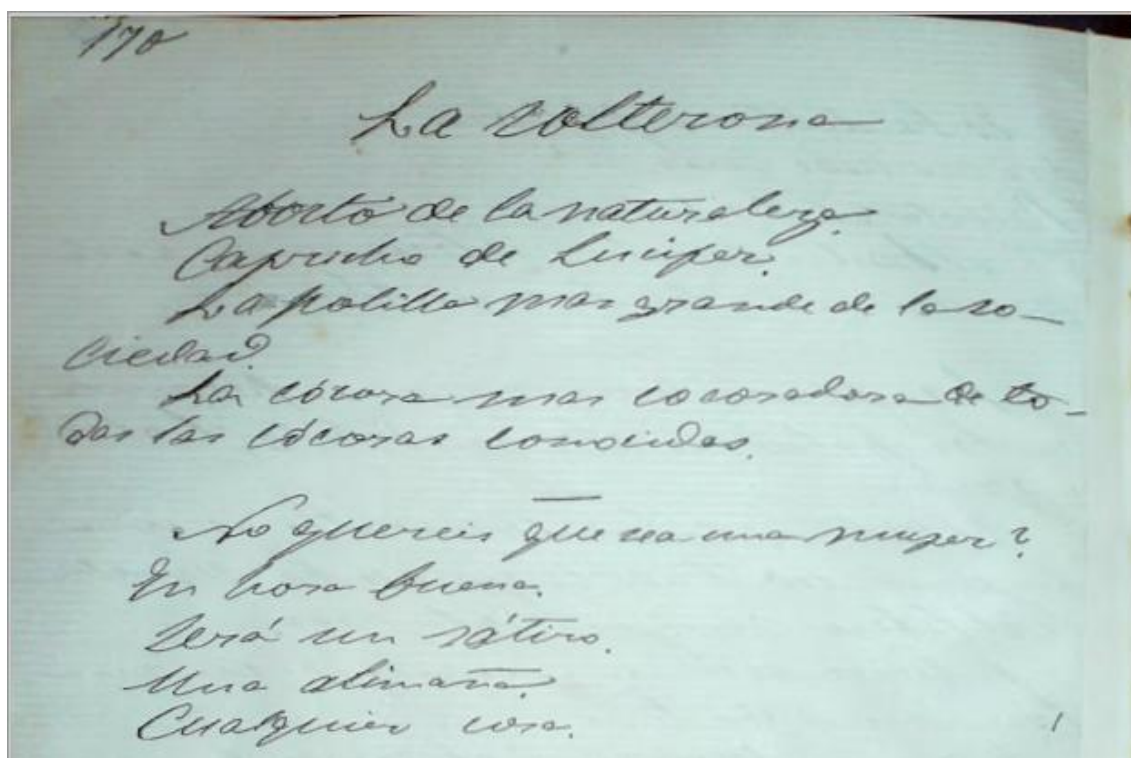 170
La solterona
Aborto de la naturaleza.
Capricho de Lucifer.
La polilla mas grande de la so-
ciedad.
La cócora mas cocoradora de to-
das las cócoras conocidas.
No quereis que sea una mujer?
En hora buena.
Será un sátiro.
Una alimaña.
Cualquier cosa.